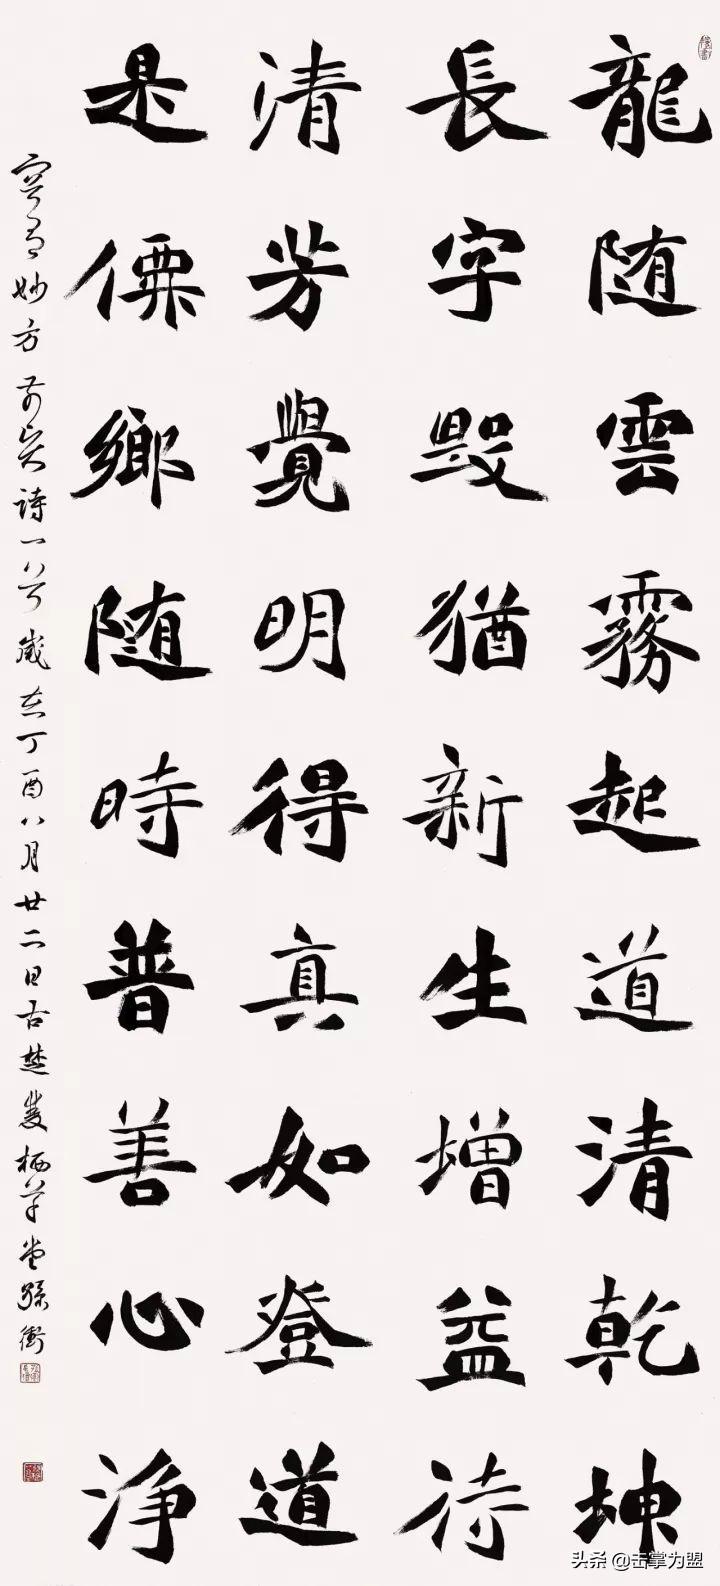 龍随雲霧起道清乾坤
長字毀猶新生增益待
清芳覺明得真如登道
是僊鄉随時普善心淨
妙方 詩一首歲在丁酉八月廿二日古楚 栖草堂
头条 @击掌为盟